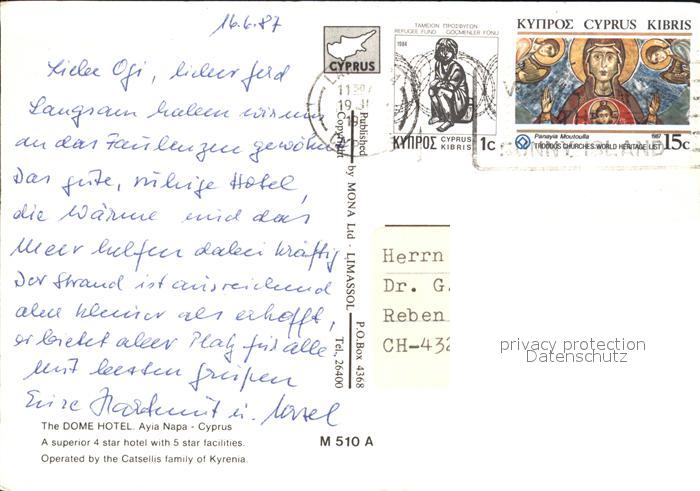 16.6.87
Liebe Ogi, lieber Gerd
Langsam haben wir uns
an das Faulenzen gewöhnt
Das gute, ruhige Hotel,
die Wärme und das
Meer helfen dabei kräftig
Der Strand ist ausreichend
aber kleiner als erhofft,
er bietet aber Platz für alle
Mit besten Grüßen
Eure Hartmut u.
The DOME HOTEL. Ayia Napa - Cyprus
A superior 4 star hotel with 5 star facilities.
Operated by the Catsellis family of Kyrenia.
M 510 A
Published by MONA Ltd - LIMASSOL P.O.Box 4368
Copyright Tel. 26400
CYPRUS
ΤΑΜΕΙΟΝ ΠΡΟΣΦΥΓΩΝ
REFUGEE FUND GÖÇMENLER FONU
1984
ΚΥΠΡΟΣ CYPRUS KIBRIS 1c
ΚΥΠΡΟΣ CYPRUS KIBRIS
Panayia Moutoulla 1987
TROODOS CHURCHES WORLD HERITAGE LIST 15c
SUNNY ISLAND
Herrn
Dr. G.
Reben
CH-432
privacy protection
Datenschutz